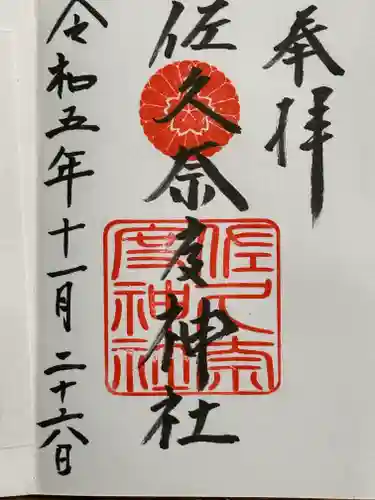 奉拝
佐久奈度神社
佐久奈度神社
令和五年十一月二十六日